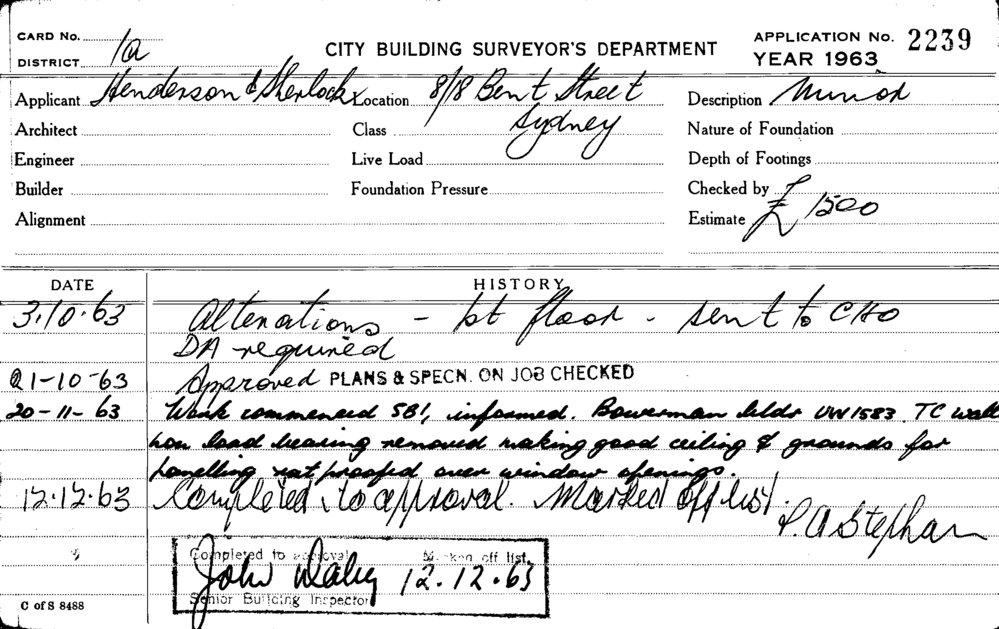 CARD No.
DISTRICT 1a
CITY BUILDING SURVEYOR'S DEPARTMENT
APPLICATION No. 2239
YEAR 1963
Applicant Henderson & Sherlock Location 8/18 Bent Street Description Minor
Sydney
Architect Class Nature of Foundation
Engineer Live Load Depth of Footings
Builder Foundation Pressure Checked by
Alignment Estimate £ 1500
DATE HISTORY
3.10.63 Alterations - 1st floor - sent to CHO
DA required
21-10-63 Approved PLANS & SPECN. ON JOB CHECKED
20-11-63 Work commenced SBI, informed. Bowerman bldr UW1583 TC wall
non load bearing removed making good ceiling & grounds for
panelling rat proofed over window openings.
12.12.63 Completed to approval. Marked off list.
P. A Stephan
Completed to approval Marked off list.
John Daley 12.12.63
Senior Building Inspector
C of S 8488